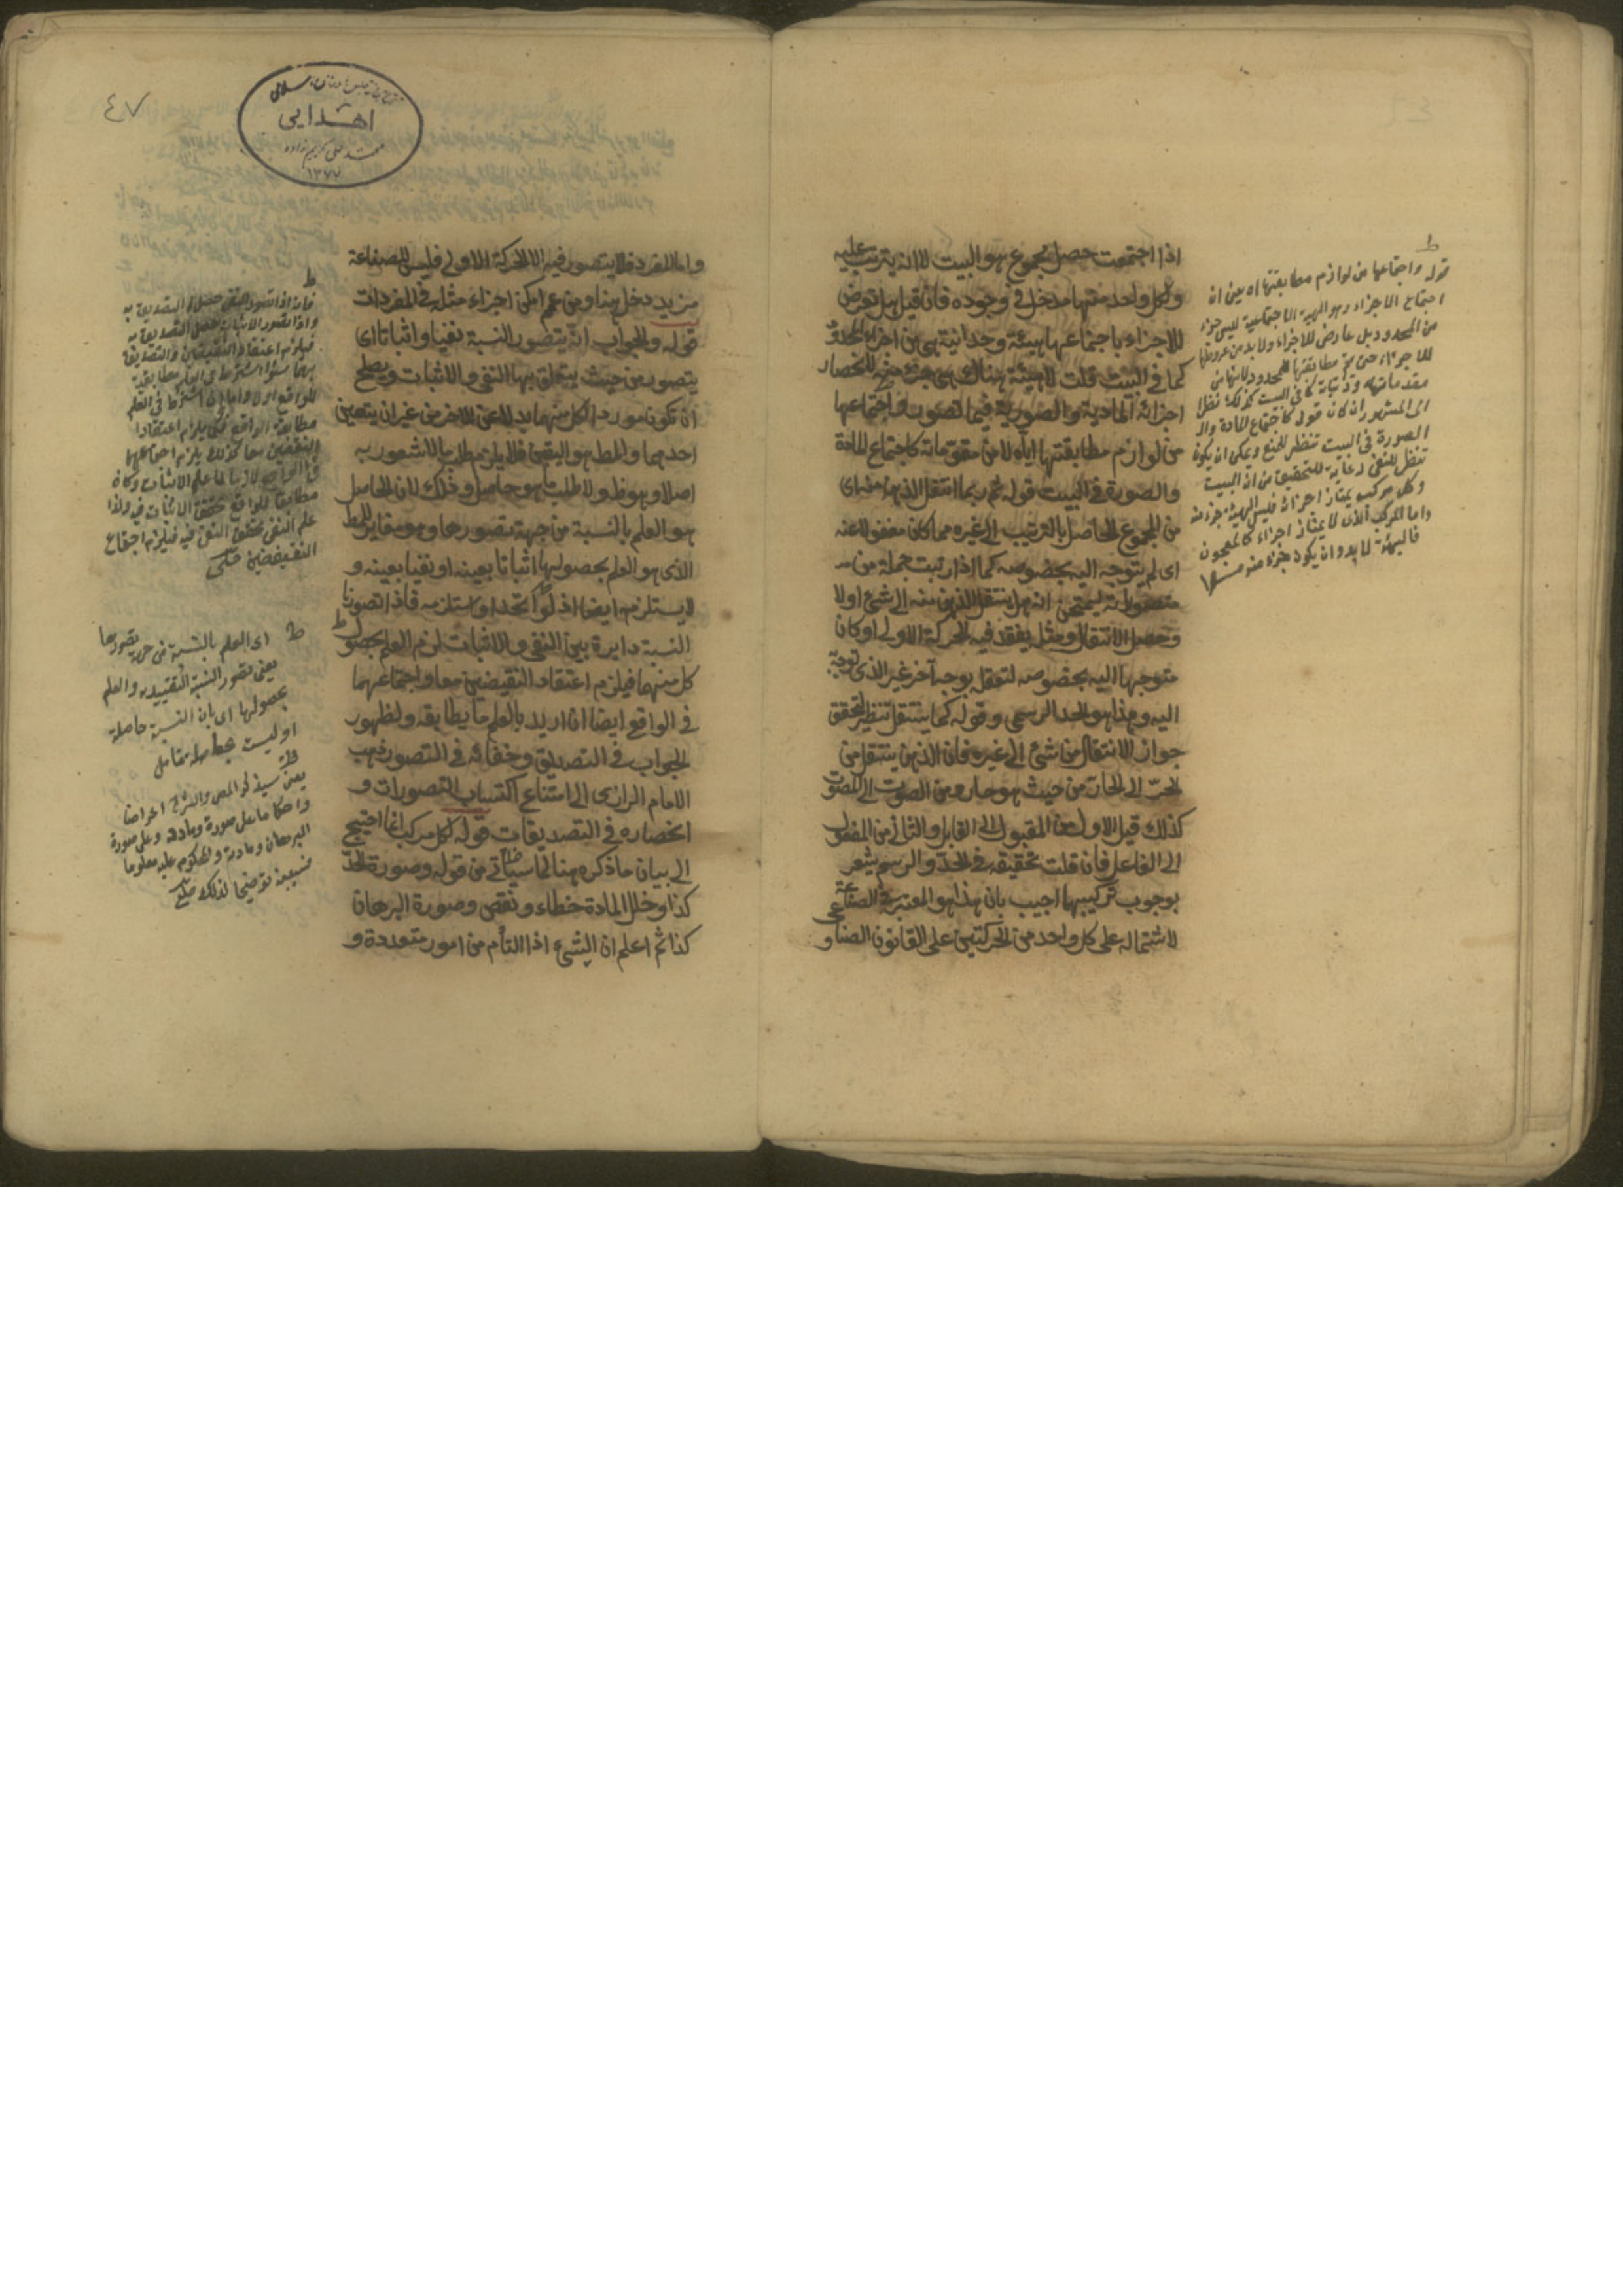 اذا اجتمعت حصل مجموع هو البيت لا انه يترتب عليه
ولكل واحد منهما مدخل في وجوده فان قيل بل تعرض
للاجزاء باجتماعها هيئة وحدانية هي من اجزاء المحدود
كما في البيت قلت لا هيئة هناك هي جزء منه لانحصار
اجزائه المادية والصورية فيما تصورت واجتماعها
من لوازم مطابقتها اياه لا من مقوماته كاجتماع المادة
والصورة في البيت قوله ثم ربما انتقل الذهن منه اى
من المجموع الحاصل بالترتيب الى غيره مما كان مغفولا عنه
اى لم يتوجه اليه بخصوصه كما اذا رتبت جملة من
متصوراته ليمتحن انه هل ينتقل الذهن منه الى شئ اولا
وحصل الانتقال ومثل يفقد فيه الحركة الاولى او كان
متوجها اليه بخصوصه لتعقل بوجه آخر غير الذى توجه
اليه وهذا هو الحد الرسمى وقوله كما ينتقل تنظير لتحقق
جواز الانتقال من شئ الى غيره فان الذهن ينتقل من
الحر الى الحار من حيث هو حار ومن الصوت الى المصوت
كذلك قيل الاول من المقبول الى القابل والثانى من المفعول
الى الفاعل فان قلت تحقيقه في الحد والرسم يشعر
بوجوب تركيبهما اجيب بان هذا هو المعتبر في الصناعة
لاشتماله على كل واحد من الحركتين على القانون الصناعى و
ط
قوله واجتماعها من لوازم مطابقتها اه يعنى ان
اجتماع الاجزاء وهو الهيئة الاجتماعية ليس جزء
من المحدود بل عارض للاجزاء ولا بد من عروضها
للاجزاء حتى يتم مطابقتها للمحدود لا انها من
الى المشهور ان كان قوله كاجتماع المادة وال
الصورة في البيت تنظير للمنع ويمكن ان يكون
تنظير للنفى رعاية للتحقيق من ان البيت
وكل مركب يمتاز اجزائه فليس الهيئة جزء منه
واما المركب الذى لا يمتاز اجزاء كالمعجون
فالهيئة لا بد وان يكون جزء منه
٤٧
اهدایی
محمد علی کریم زاده
١٣٧٧
واما المفرد فلا يتصور فيه الا الحركة الاولى فليس للصناعة
مزيد دخل هنا ومن عم امكن اجزاء مثله في المفردات
قوله والجواب انه يتصور النسبة نفيا واثباتا اى
يتصور من حيث يتعلق بها النفى والاثبات ويصلح
ان تكون مورد الكل منهما بدلا عن الاخر من غير ان يتعين
احدهما والمط هو اليقين فلا يلزم طلب ما لا شعور به
اصلا وهو ظ ولا طلب ما هو حاصل وذلك لان الحاصل
هو العلم بالنسبة من جهة تصورها وهو مغاير للمط
الذى هو العلم بحصولها اثباتا بعينه او نفيا بعينه و
لا يستلزمه ايضا اذ لو اتحدا او استلزمه فاذا تصورنا
النسبة دايرة بين النفى والاثبات لزم العلم بحصول
كل منهما فيلزم اعتقاد النقيضين معا واجتماعهما
في الواقع ايضا ان اريد بالعلم ما يطابقه ولظهور
الجواب في التصديق وخفائه في التصور ذهب
الامام الرازى الى امتناع اكتساب التصورات و
انحصاره في التصديقات قوله كل مركب انما احتيج
الى بيان ما ذكره هنا لما سيأتى من قوله وصورة الحد
كذا وخلل المادة خطاء ونقص وصورة البرهان
كذا ثم اعلم ان الشئ اذا التأم من امور متعددة و
ط
فانه اذا تصور النفى حصل التصديق به
واذا تصور الاثبات حصل التصديق به
فيلزم اعتقاد النقيضين والتصديق
بهما سواء اشترط في العلم مطابقة
للواقع اولا واما ان اشترط في العلم
مطابقة الواقع فكما يلزم اعتقاد
النقيضين معا كذلك يلزم اجتماعهما
في الواقع لانه لما علم الاثبات وكان
مطابقا للواقع تحقق الاثبات فيه واذا
علم النفى تحقق النفى فيه فيلزم اجتماع
النقيضين
ط اى العلم بالنسبة من جهة تصورها
يعنى تصور النسبة التقييدية والعلم
بحصولها اى بان النسبة حاصلة
او ليست بحاصلة
يعنى سيذكر المص والشرح اعراضا
واحكاما على صورة ومادة وعلى صورة
البرهان ومادته والمحكوم عليه معلوما
فيبينه توضيحا لذلك